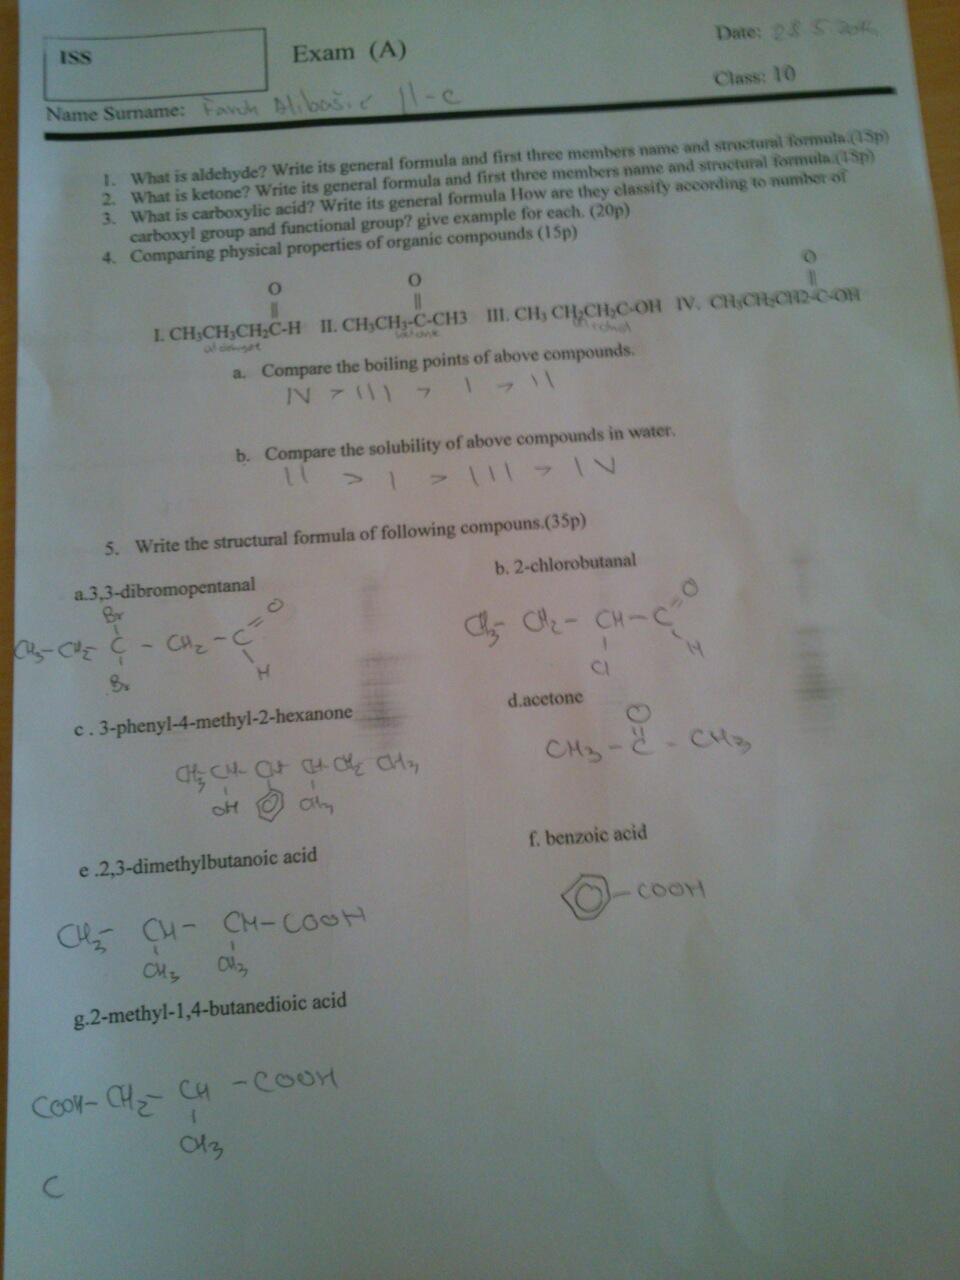 ISS
Exam (A)
Date: 28.5.
Class: 10
Name Surname: Faruk Alibašić II-c
1. What is aldehyde? Write its general formula and first three members name and structural formula.(15p)
2. What is ketone? Write its general formula and first three members name and structural formula.(15p)
3. What is carboxylic acid? Write its general formula How are they classify according to number of
carboxyl group and functional group? give example for each. (20p)
4. Comparing physical properties of organic compounds (15p)
O O O
|| || ||
I. CH₃CH₂CH₂C-H II. CH₃CH₂-C-CH3 III. CH₃ CH₂CH₂C-OH IV. CH₃CH₂CH2-C-OH
ketone
a. Compare the boiling points of above compounds.
IV > III > I > II
b. Compare the solubility of above compounds in water.
II > I > III > IV
5. Write the structural formula of following compouns.(35p)
a.3,3-dibromopentanal
b. 2-chlorobutanal
Br O
CH₃-CH₂- C - CH₂ - C
Br H
O
CH₃- CH₂- CH-C
Cl H
c . 3-phenyl-4-methyl-2-hexanone
d.acetone
O
CH₃ - C - CH₃
CH₃ CH- CH CH- CH₂ CH₃
OH CH₃
e .2,3-dimethylbutanoic acid
f. benzoic acid
-COOH
CH₃- CH- CH-COOH
CH₃ CH₃
g.2-methyl-1,4-butanedioic acid
COOH-CH₂- CH -COOH
CH₃
C